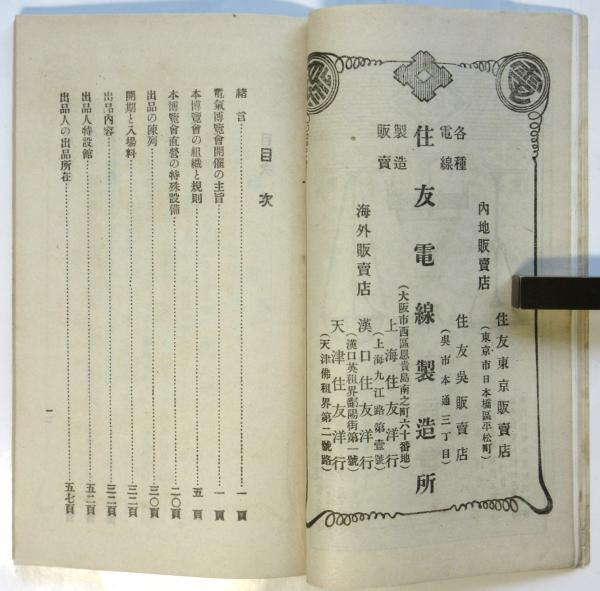 各種
電線
製造
販賣
住友電線製造所
(大阪市西區恩貴島南之町六十番地)
內地販賣店
住友東京販賣店
(東京市日本橋區平松町)
住友吳販賣店
(吳市本通三丁目)
海外販賣店
上海住友洋行
(上海九江路第壹號)
漢口住友洋行
(漢口英租界鄱陽街第一號)
天津住友洋行
(天津佛租界第二號路)
目次
緖言……一頁
電氣博覽會開催の主旨……一頁
本博覽會の組織と規則……五頁
本博覽會直營の特殊設備……二〇頁
出品の陳列……三〇頁
開期と入場料……三二頁
出品內容……三二頁
出品人特設館……五二頁
出品人の出品所在……五七頁
一